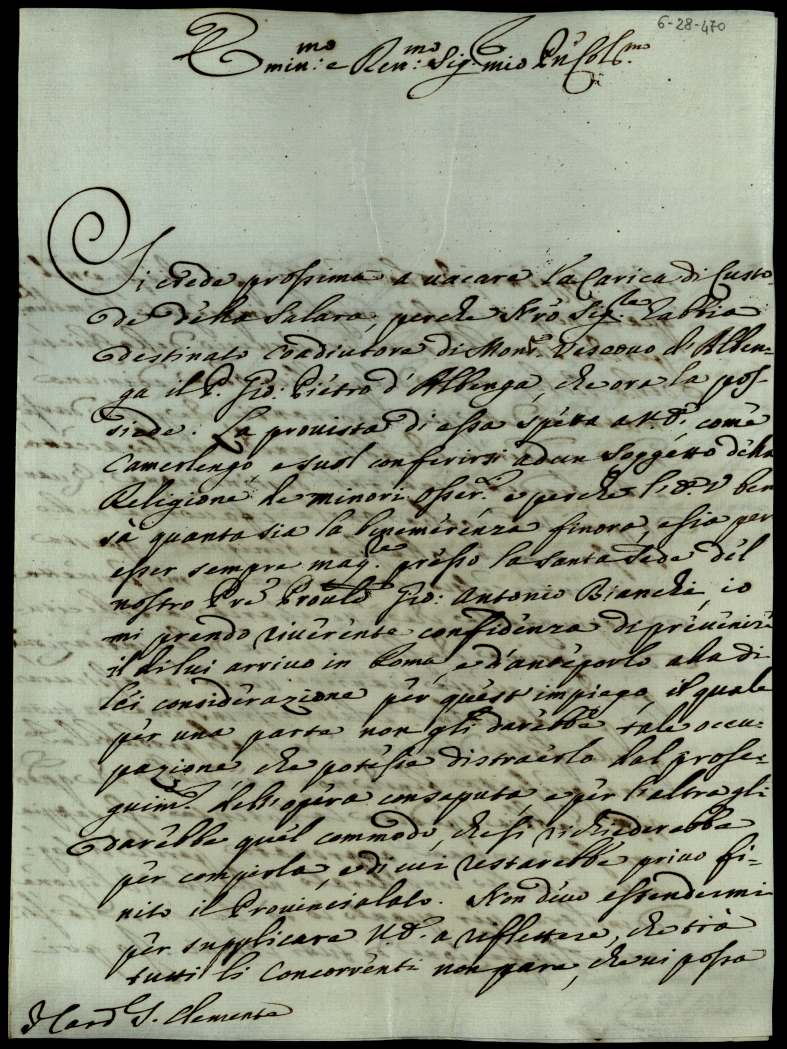 6-28-470
Emin:mo e Ren:mo Sig. mio Pñ Col.mo
Si crede prossima a uacare la Carica di Custo
de della Salara, perche Nr̃o Sig.re l'abbia
destinato Coadiutore di Mons.r Vescouo d'Alben=
ga il P. Gio: Pietro d'Albenga, che ora la pos=
siede. La prouista di essa spetta a V.E. come
Camerlengo, e suol conferirsi ad un soggetto della
Religione de minori Osser.ti e perche l'E.V. ben
sà quanta sia la benemerenza finora, e sia per
esser sempre mag.re presso la Santa Sede del
nostro Pr̃e Prouĺe Gio: Antonio Bianchi, io
mi prendo riuerente confidenza di preuenire
il di lui arriuo in Roma, e d'anteporlo alla di
lei considerazione per quest'impiego, il quale
per una parte non gli darebbe tale occu=
pazione, che potesse distraerlo dal prose=
guim.to dell'opera consaputa, e per l'altra gli
darebbe quel commodo, che si richiederebbe
per compirla, e di cui restarebbe priuo fi=
nito il Prouincialato. Non deuo estendermi
per supplicare V.E. a riflettere, che trà
tutti li Concorrenti non pare, che ui possa
Card. S. Clemente